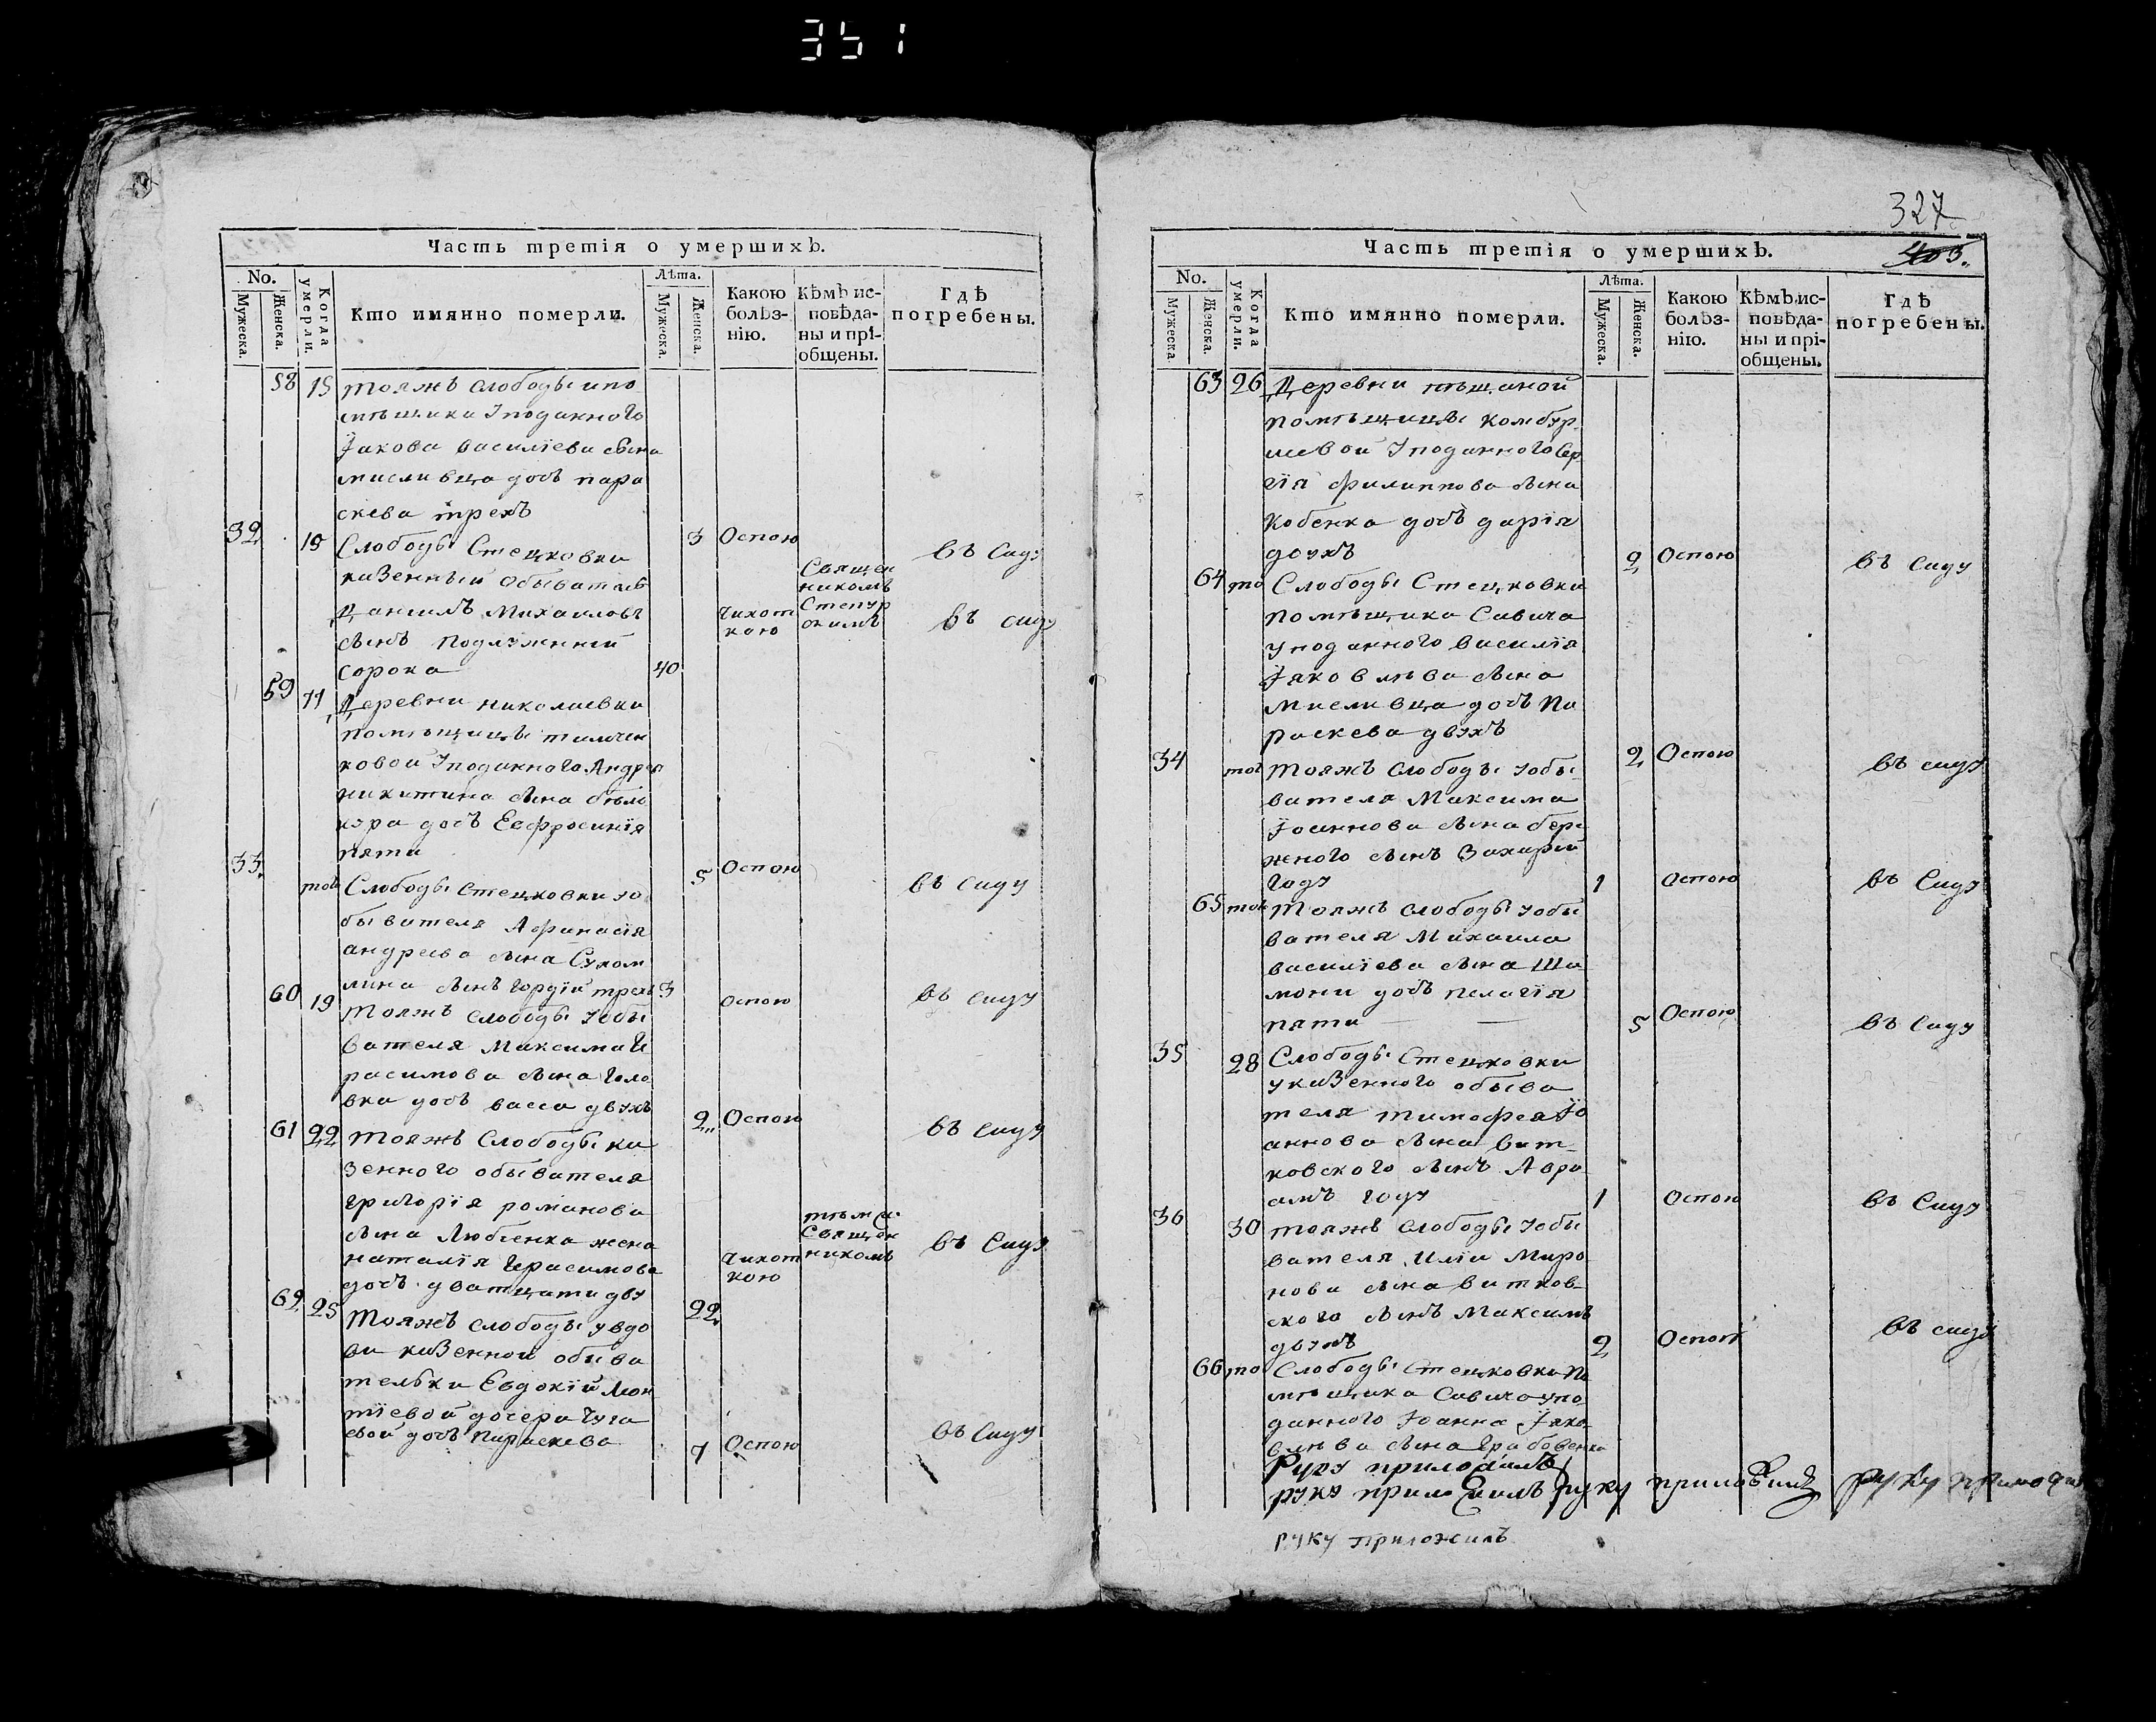 351
Часть третія о умершихъ.
No.
Мужеска.
Женска.
Когда умерли.
Кто имянно померли.
Лѣта.
Мужеска.
Женска.
Какою болѣз-
нію.
Кѣмъ ис-
повѣда-
ны и прі-
общены.
Гдѣ
погребены.
58 15 тояжъ слободы ипо
мѣщика Уподанного
Іакова василіева сына
мисливца дочъ пара
скева трехъ
3 Оспою въ Саду
32 15 Слободы Стецковки
казенный обыватель
Даніилъ Михаиловъ
сынъ Подлужній
сорока 40
Чихот
кою
Священ
никомъ
въ саду
59 17 Деревни николаевки
помѣщицы
ковой Уподанного Андрея
никитина сына бѣло
кура дочъ Евфросинія
пяти
5 Оспою въ саду
33. тог Слободы Стецковки уо
бывателя Афанасія
андреева сына Сухом
лина сынъ Гордій трехъ 3
оспою въ саду
60 19 тояжъ слободы уобы
вателя Максима Ге
расимова сына Голо
вка дочъ васса двухъ
2 Оспою въ саду
61 22 тояжъ Слободы ка
зенного обывателя
григорія романова
сына Любченка жена
наталія Герасимова
дочъ дватцати дву
22
Чихот
кою
тѣмже
Священ
никомъ
въ Саду
62 25 Тояжъ слободы увдо
ви казенной обыва
тельки Евдокіи Леон
тіевой дочери Чуга
евой дочъ параскева
7 Оспою въ Саду
327
403.
Часть третія о умершихъ.
No.
Мужеска.
Женска.
Когда умерли.
Кто имянно померли.
Лѣта.
Мужеска.
Женска.
Какою болѣз-
нію.
Кѣмъ ис-
повѣда-
ны и прі-
общены.
Гдѣ
погребены.
63 26 Деревни пѣщаной
помѣщицы Комбур
леевой Уподанного Сер
гія филиппова сына
Кобенка дочъ дарія
двухъ
2 Оспою въ Саду
64 то Слободы Стецковки
помѣщика Савича
уподанного василія
Іаковлѣва сына
мисливца дочъ Па
раскева двухъ
2 Оспою въ саду
34 тог Тояжъ слободы уобы
вателя Максима
Іоаннова сына бере
жного сынъ Захарій
году 1 Оспою въ Саду
65 тог Тояжъ слободы уобы
вателя Михаила
василіева сына Ша
мони дочъ пелагія
пяти
5 Оспою въ Саду
35 28 Слободы Стецковки
указенного обыва
теля тимофея Іо
аннова сына вит-
ковского сынъ Авра
амъ году 1 Оспою въ Саду
36 30 тояжъ слободы уобы
вателя Иліи Миро
нова сына витков-
ского сынъ Максимъ
двухъ 2 Оспою въ саду
66 то Слободы Стецковки по
мѣщика Савича упо
данного Іоанна Іако
влѣва сына Грабовенка
Руку приложилъ
руку приложилъ руку приложилъ руку приложил
руку приложилъ